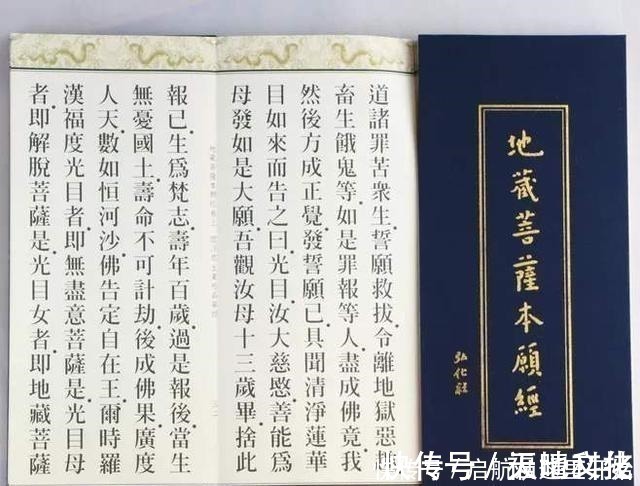 地藏菩薩本願經
弘化社
道諸罪苦衆生。誓願救拔。令離地獄惡
畜生餓鬼等。如是罪報等人。盡成佛竟。我
然後方成正覺。發誓願已。具聞清淨蓮華
目如來而告之曰。光目。汝大慈愍。善能爲
母發如是大願。吾觀汝母十三歲畢。捨此
報已。生爲梵志。壽年百歲。過是報後。當生
無憂國土。壽命不可計劫。後成佛果。廣度
人天。數如恒河沙。佛告定自在王。爾時羅
漢福度光目者。即無盡意菩薩是。光目母
者。即解脫菩薩是。光目女者。即地藏菩薩